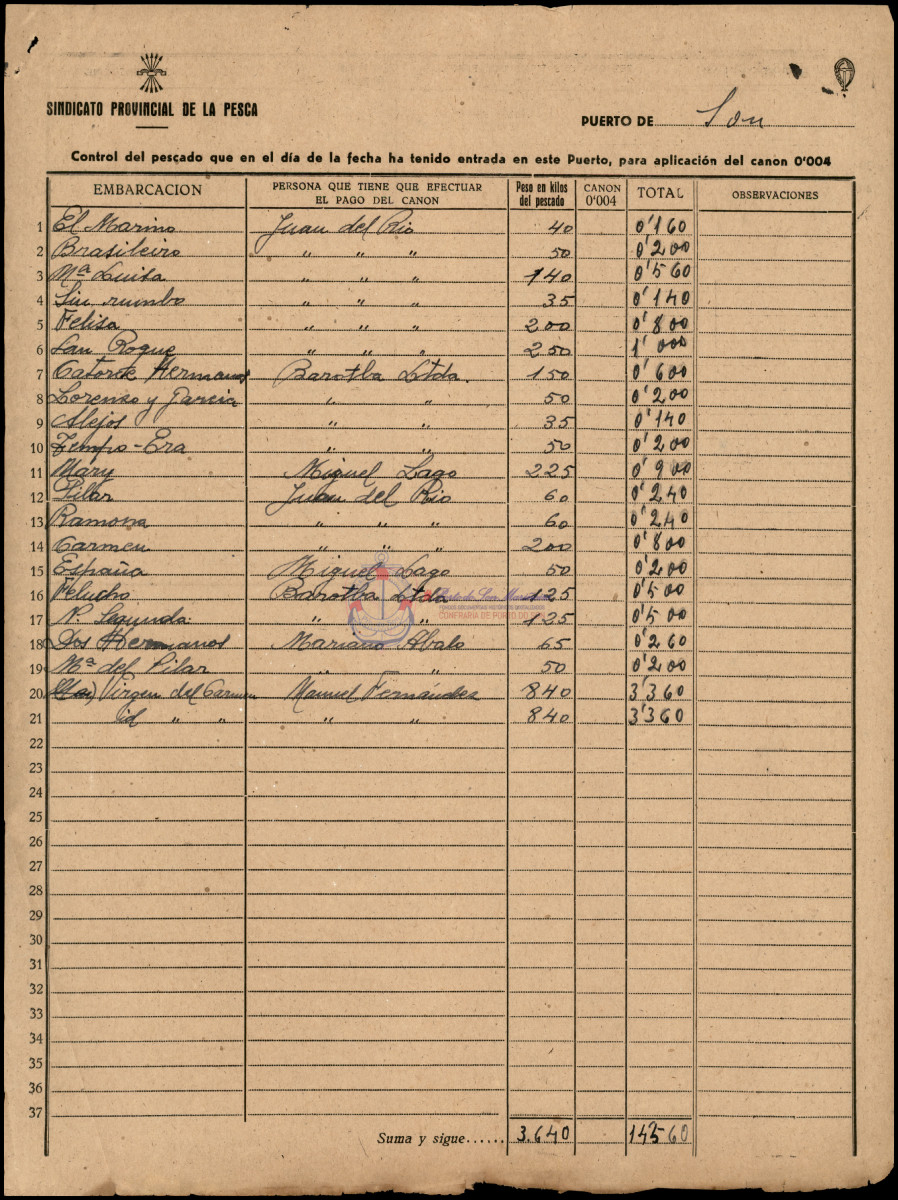 SINDICATO PROVINCIAL DE LA PESCA
PUERTO DE Son
Control del pescado que en el día de la fecha ha tenido entrada en este Puerto, para aplicación del canon 0'004
EMBARCACION PERSONA QUE TIENE QUE EFECTUAR EL PAGO DEL CANON Peso en kilos del pescado CANON 0'004 TOTAL OBSERVACIONES
1 El Marino Juan del Rio 40 0'160
2 Brasileiro " " " 50 0'200
3 Mª Luisa " " " 140 0'560
4 Sin rumbo " " " 35 0'140
5 Felisa " " " 200 0'800
6 San Roque " " " 250 1'000
7 Catorce Hermanos Barotba Ltda. 150 0'600
8 Lorenso y Garcia " " 50 0'200
9 Alejos " " 35 0'140
10 Tempo-Era " " 50 0'200
11 Mary Miguel Lago 225 0'900
12 Pilar Juan del Rio 60 0'240
13 Ramona " " " 60 0'240
14 Carmen " " " 200 0'800
15 España Miguel Lago 50 0'200
16 Pelucho Barotba Ltda 125 0'500
17 N. Segunda " " 125 0'500
18 Dos Hermanos Mariano Abalo 65 0'260
19 Mª del Pilar " " 50 0'200
20 Virgen del Carmen Manuel Fernández 840 3'360
21 id " " " " 840 3'360
22
23
24
25
26
27
28
29
30
31
32
33
34
35
36
37
Suma y sigue...... 3.640 14560
CONFRARIA DE PORTO DO